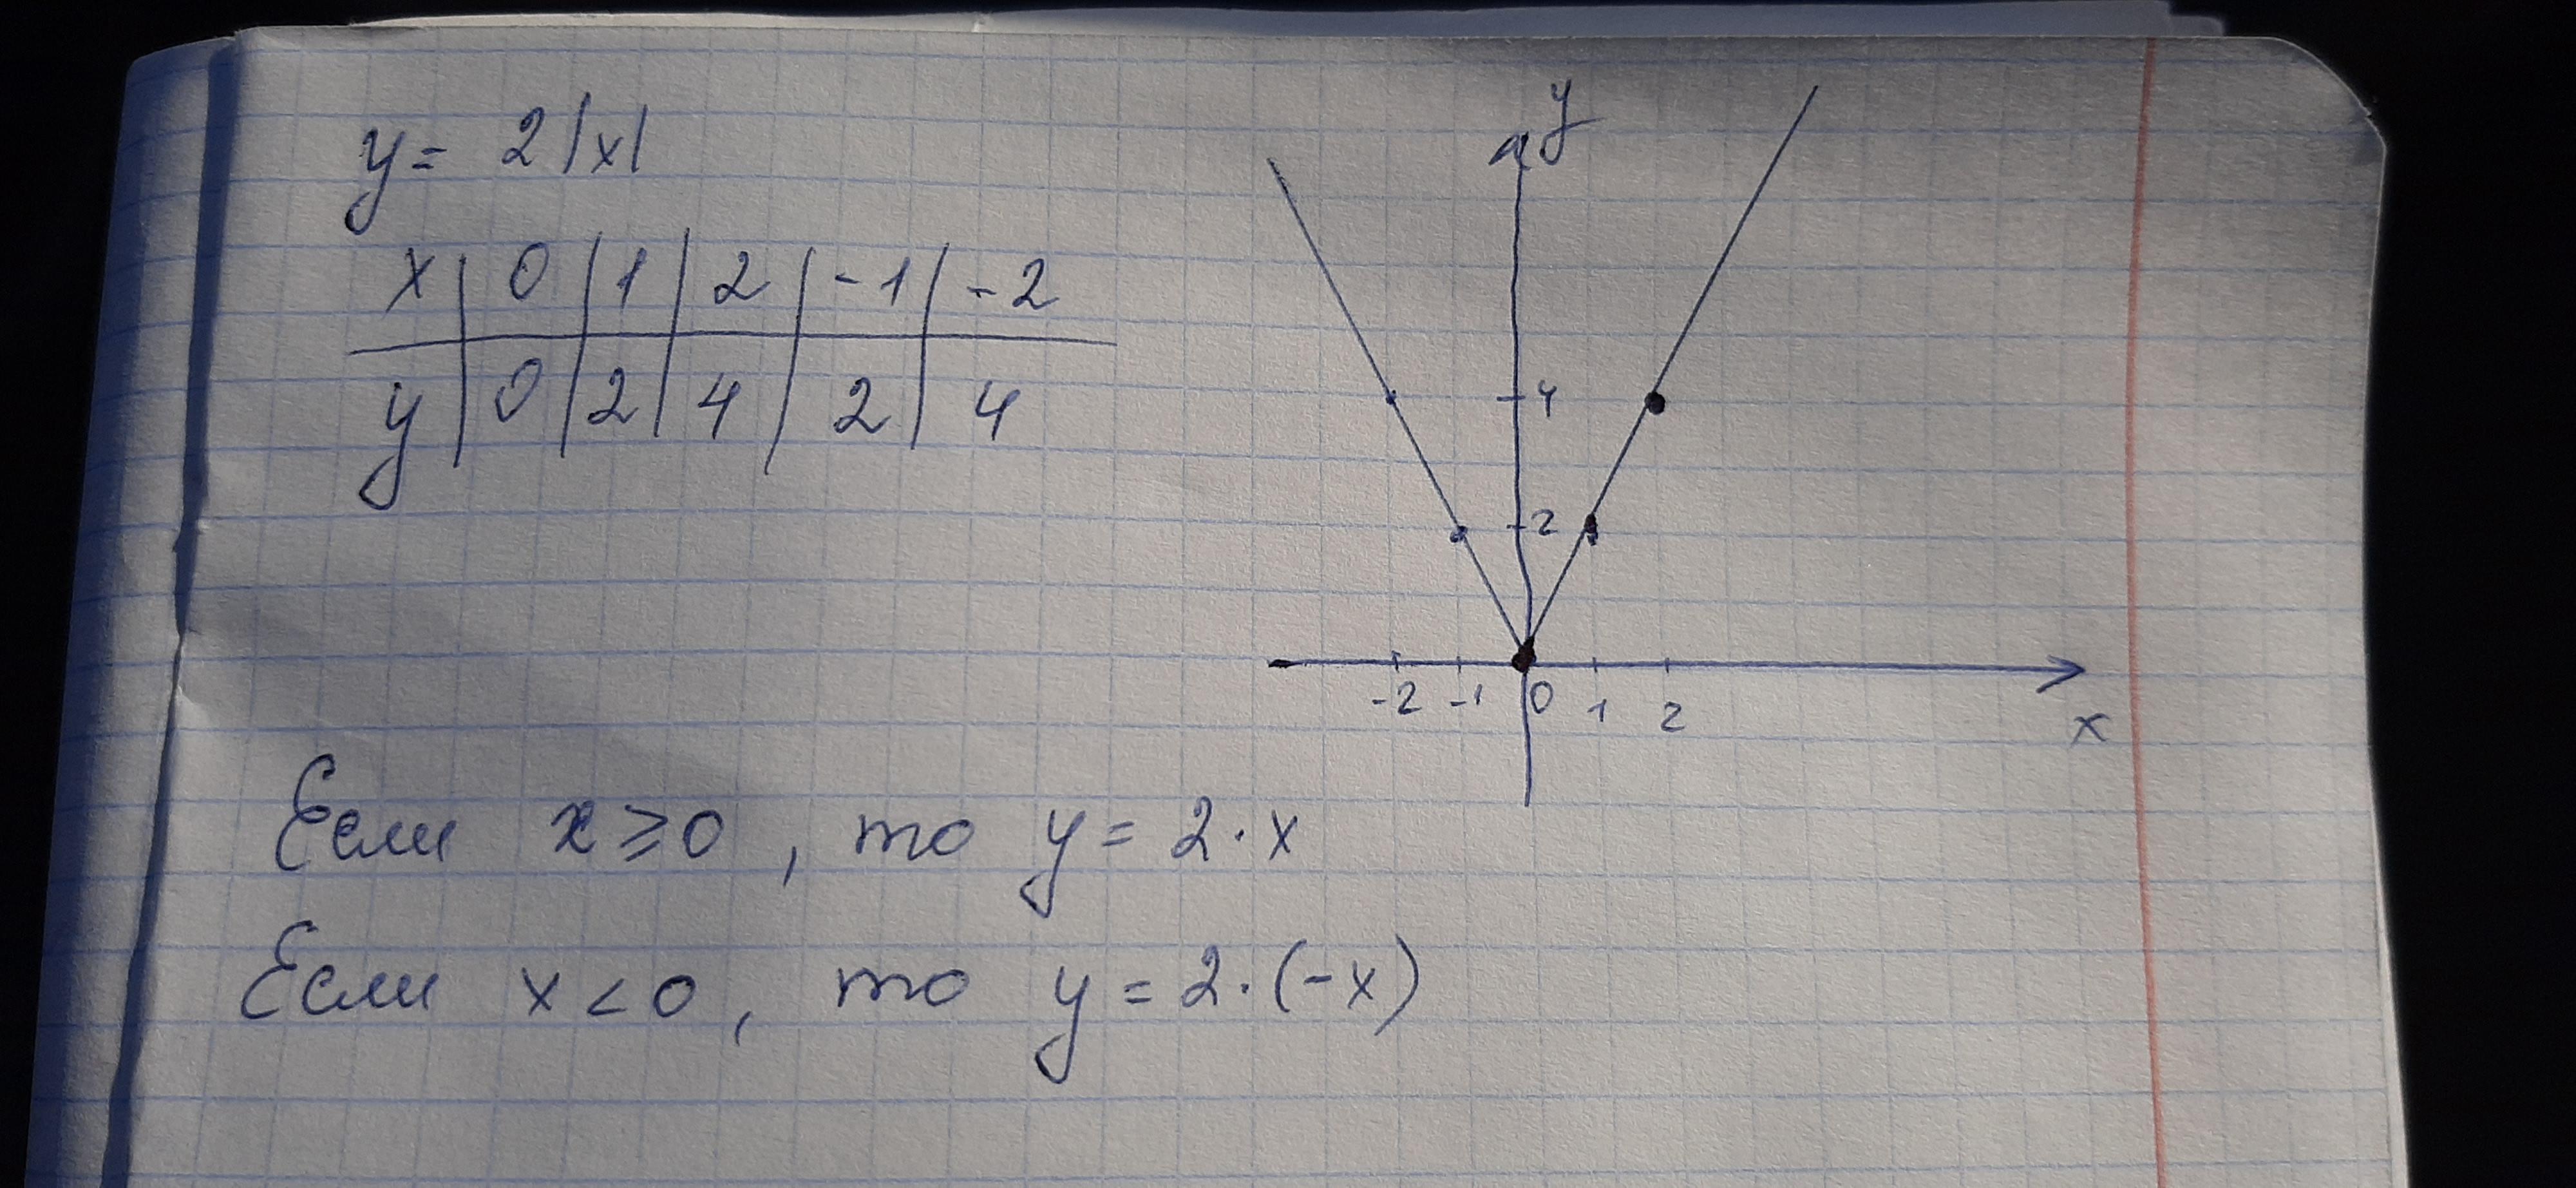 y = 2|x|
x | 0 | 1 | 2 | -1 | -2
y | 0 | 2 | 4 | 2 | 4
y
4
2
-2 -1 0 1 2
x
Если x ≥ 0, то y = 2·x
Если x < 0, то y = 2·(-x)